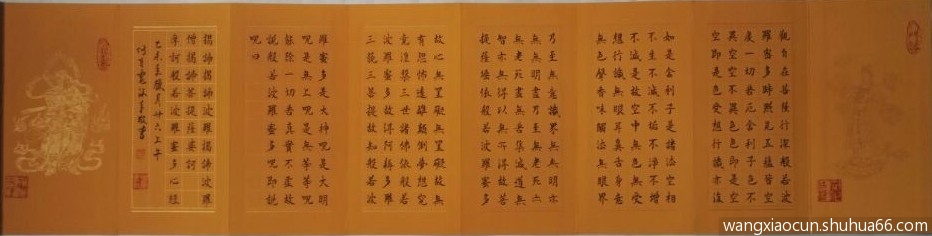 觀自在菩薩行深般若波
羅蜜多時照見五蘊皆空
度一切苦厄舍利子色不
異空空不異色色即是空
空即是色受想行識亦復
如是舍利子是諸法空相
不生不滅不垢不淨不增
不減是故空中無色無受
想行識無眼耳鼻舌身意
無色聲香味觸法無眼界
乃至無意識界無無明亦
無無明盡乃至無老死亦
無老死盡無苦集滅道無
智亦無得以無所得故菩
提薩埵依般若波羅蜜多
故心無罣礙無罣礙故無
有恐怖遠離顛倒夢想究
竟涅槃三世諸佛依般若
波羅蜜多故得阿耨多羅
三藐三菩提故知般若波
羅蜜多是大神呪是大明
呪是無上呪是無等等呪
能除一切苦真實不虛故
說般若波羅蜜多呪即說
呪曰
揭諦揭諦波羅揭諦波羅
僧揭諦菩提薩婆訶
摩訶般若波羅蜜多心經
月廿六上午
wangxiaocun.shuhua66.com